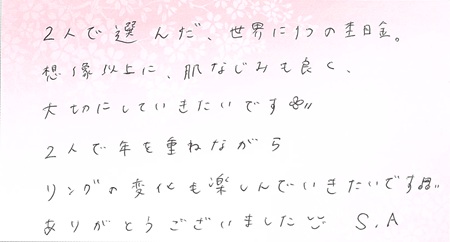 2人で選んだ、世界に1つの杢目金。
想像以上に、肌なじみも良く、
大切にしていきたいです
2人で年を重ねながら
リングの変化も楽しんでいきたいです
ありがとうございました S.A